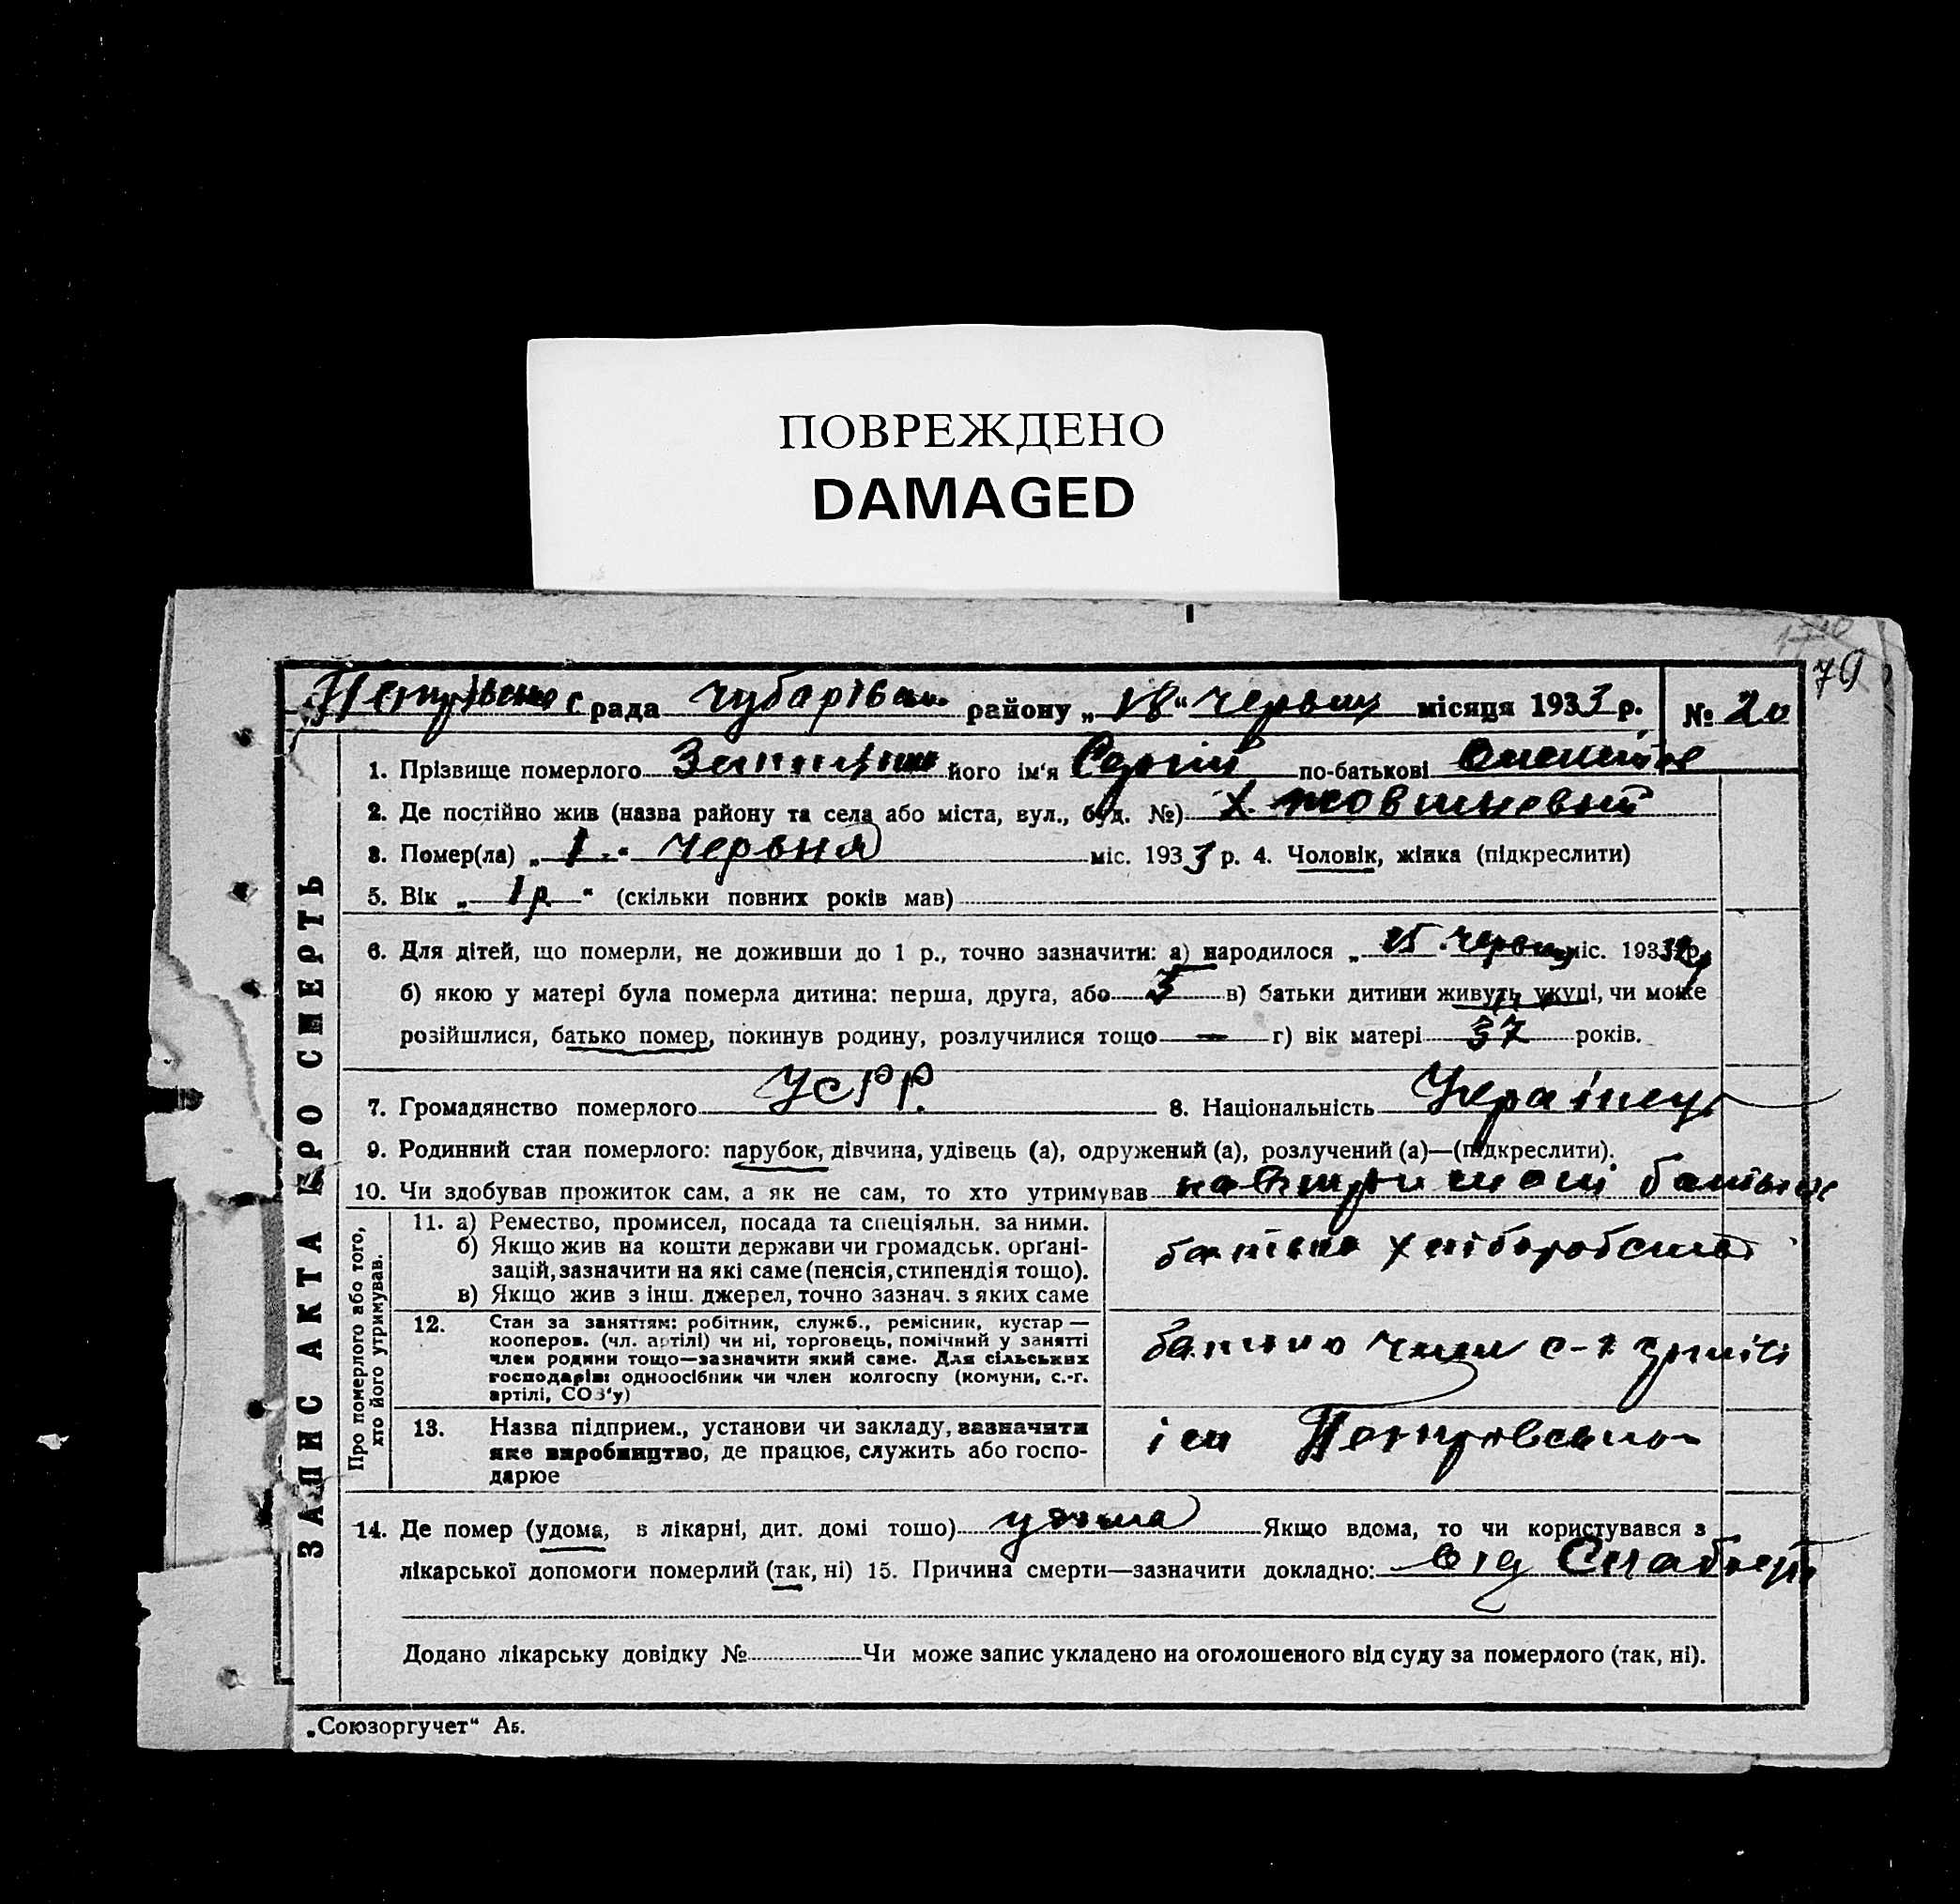 ПОВРЕЖДЕНО
DAMAGED
79
с рада район у „ 18 “ Червня місяця 1933 р. № 20
1. Прізвище померлого його ім'я Сергій по-батькові
2. Де постійно жив (назва району та села або міста, вул., буд. №) х. Жовтневий
3. Помер(ла) „ 1 “ червня міс. 1933 р. 4. Чоловік, жінка (підкреслити)
5. Вік „ 1 р “ (скільки повних років мав)
6. Для дітей, що померли, не доживши до 1 р., точно зазначити: а) народилося „ червня міс. 193 р.
б) якою у матері була померла дитина: перша, друга, або 3 в) батьки дитини живуть укупі, чи може
розійшлися, батько помер, покинув родину, розлучилися тощо — г) вік матері 37 років.
7. Громадянство померлого УСРР. 8. Національність Українец
9. Родинний стан померлого: парубок, дівчина, удівець (а), одружений (а), розлучений (а)—(підкреслити).
10. Чи здобував прожиток сам, а як не сам, то хто утримував на втриманні батьків
Про померлого або того, хто його утримував.
11. а) Ремество, промисел, посада та спеціяльн. за ними.
б) Якщо жив на кошти держави чи громадськ. орґані-
зацій, зазначити на які саме (пенсія, стипендія тощо).
в) Якщо жив з інш. джерел, точно зазнач. з яких саме
батько хліборобство
12. Стан за заняттям: робітник, служб., ремісник, кустар —
кооперов. (чл. артілі) чи ні, торговець, помічний у занятті
член родини тощо—зазначити який саме. Для сільських
господарів: одноосібник чи член колгоспу (комуни, с.-г.
артілі, СОЗ'у)
батько член с-г артілі
13. Назва підприєм., установи чи закладу, зазначити
яке виробництво, де працює, служить або госпо-
дарює
ім Петровського
14. Де помер (удома, в лікарні, дит. домі тощо) удома Якщо вдома, то чи користувався з
лікарської допомоги померлий (так, ні) 15. Причина смерти—зазначити докладно: від
Додано лікарську довідку № Чи може запис укладено на оголошеного від суду за померлого (так, ні).
ЗАПИС АКТА ПРО СМЕРТЬ
„Союзоргучет“ А5.